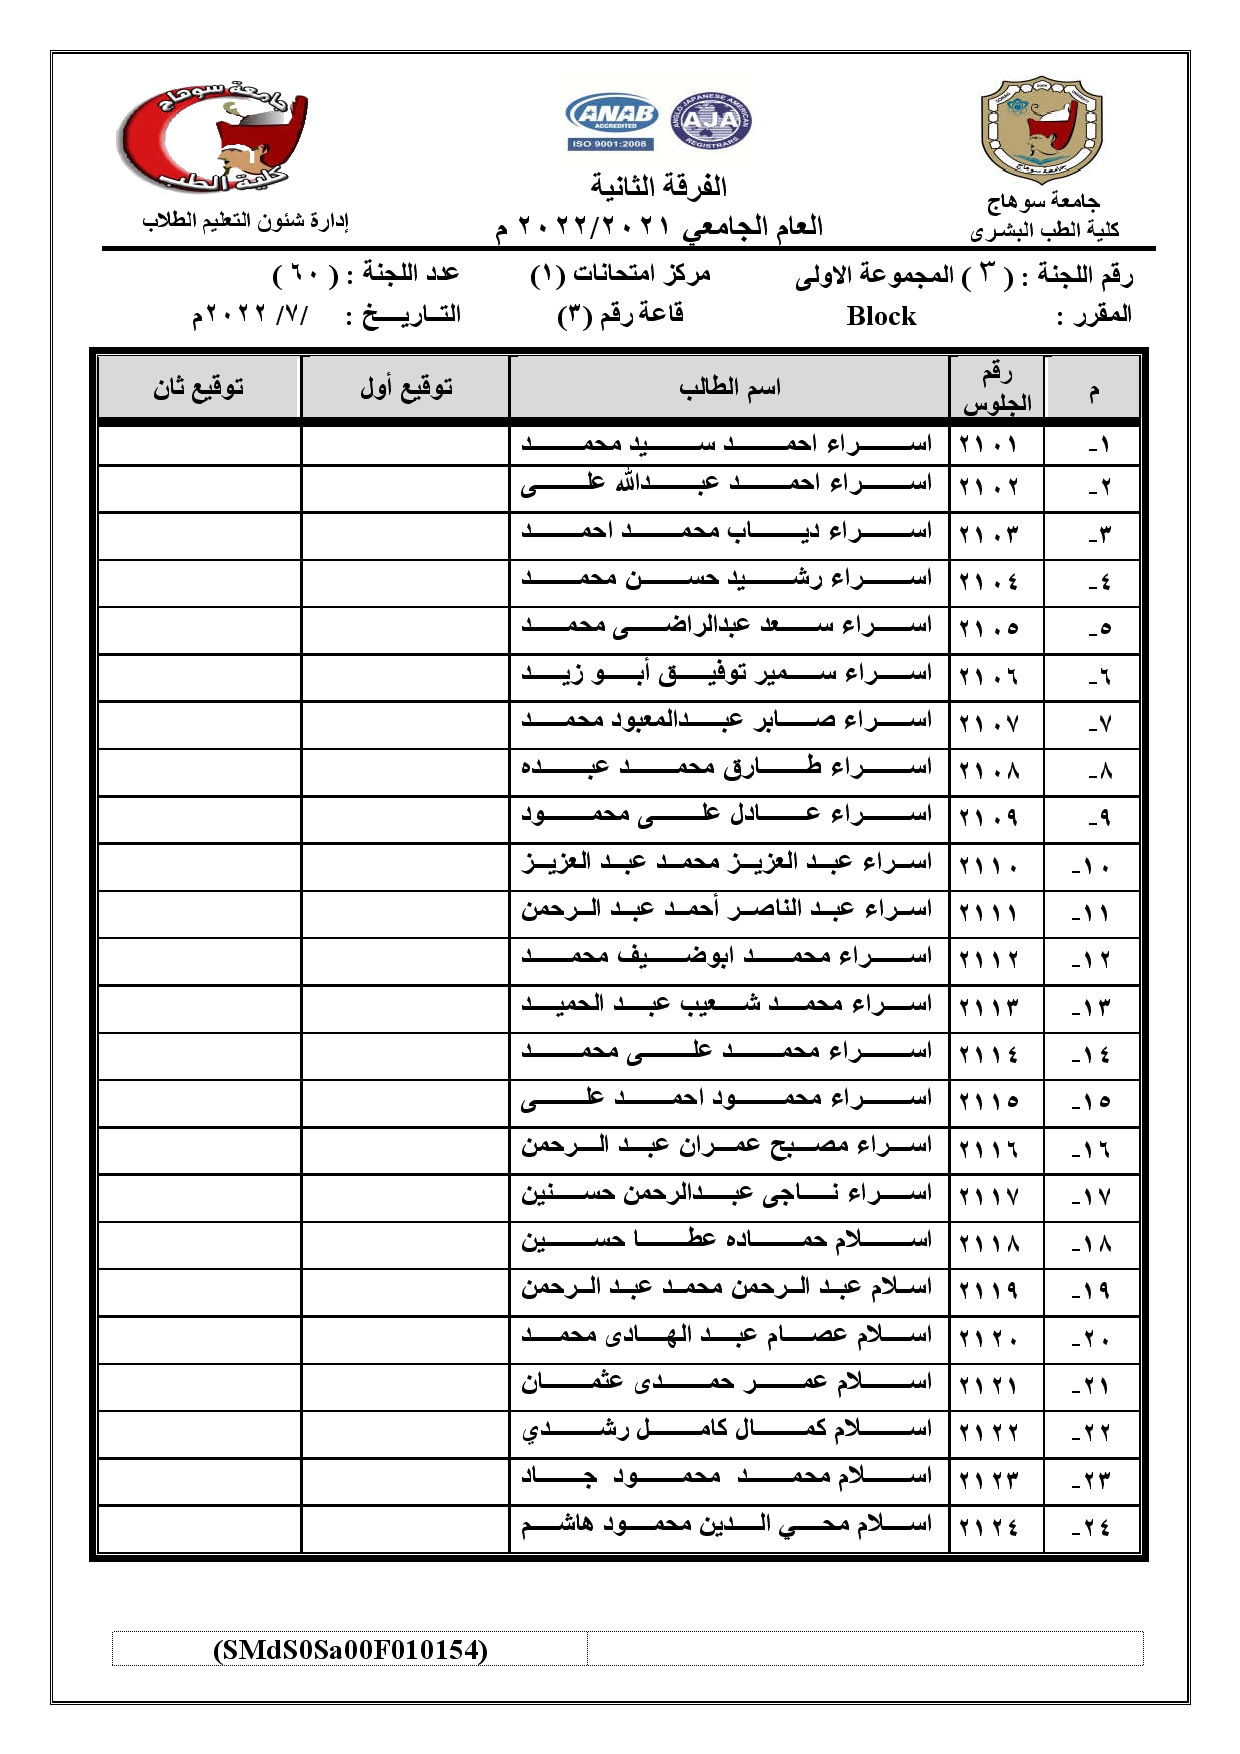 جامعة سوهاج
كلية الطب
ANAB
ACCREDITED
ISO 9001:2008
ANGLO JAPANESE AMERICAN
AJA
REGISTRARS
جامعة سوهاج
جامعة سوهاج
كلية الطب البشرى
الفرقة الثانية
العام الجامعي ٢٠٢٢/٢٠٢١ م
إدارة شئون التعليم الطلاب
رقم اللجنة : ( ٣ ) المجموعة الاولى مركز امتحانات (١) عدد اللجنة : ( ٦٠ )
المقرر : Block قاعة رقم (٣) التاريخ : /٧/ ٢٠٢٢م
م رقم الجلوس اسم الطالب توقيع أول توقيع ثان
١- ٢١٠١ اسراء احمد سيد محمد
٢- ٢١٠٢ اسراء احمد عبدالله على
٣- ٢١٠٣ اسراء دياب محمد احمد
٤- ٢١٠٤ اسراء رشيد حسن محمد
٥- ٢١٠٥ اسراء سعد عبدالراضى محمد
٦- ٢١٠٦ اسراء سمير توفيق أبو زيد
٧- ٢١٠٧ اسراء صابر عبدالمعبود محمد
٨- ٢١٠٨ اسراء طارق محمد عبده
٩- ٢١٠٩ اسراء عادل على محمود
١٠- ٢١١٠ اسراء عبد العزيز محمد عبد العزيز
١١- ٢١١١ اسراء عبد الناصر أحمد عبد الرحمن
١٢- ٢١١٢ اسراء محمد ابوضيف محمد
١٣- ٢١١٣ اسراء محمد شعيب عبد الحميد
١٤- ٢١١٤ اسراء محمد على محمد
١٥- ٢١١٥ اسراء محمود احمد على
١٦- ٢١١٦ اسراء مصبح عمران عبد الرحمن
١٧- ٢١١٧ اسراء ناجى عبدالرحمن حسنين
١٨- ٢١١٨ اسلام حماده عطا حسين
١٩- ٢١١٩ اسلام عبد الرحمن محمد عبد الرحمن
٢٠- ٢١٢٠ اسلام عصام عبد الهادى محمد
٢١- ٢١٢١ اسلام عمر حمدى عثمان
٢٢- ٢١٢٢ اسلام كمال كامل رشدي
٢٣- ٢١٢٣ اسلام محمد محمود جاد
٢٤- ٢١٢٤ اسلام محي الدين محمود هاشم
(SMdS0Sa00F010154)